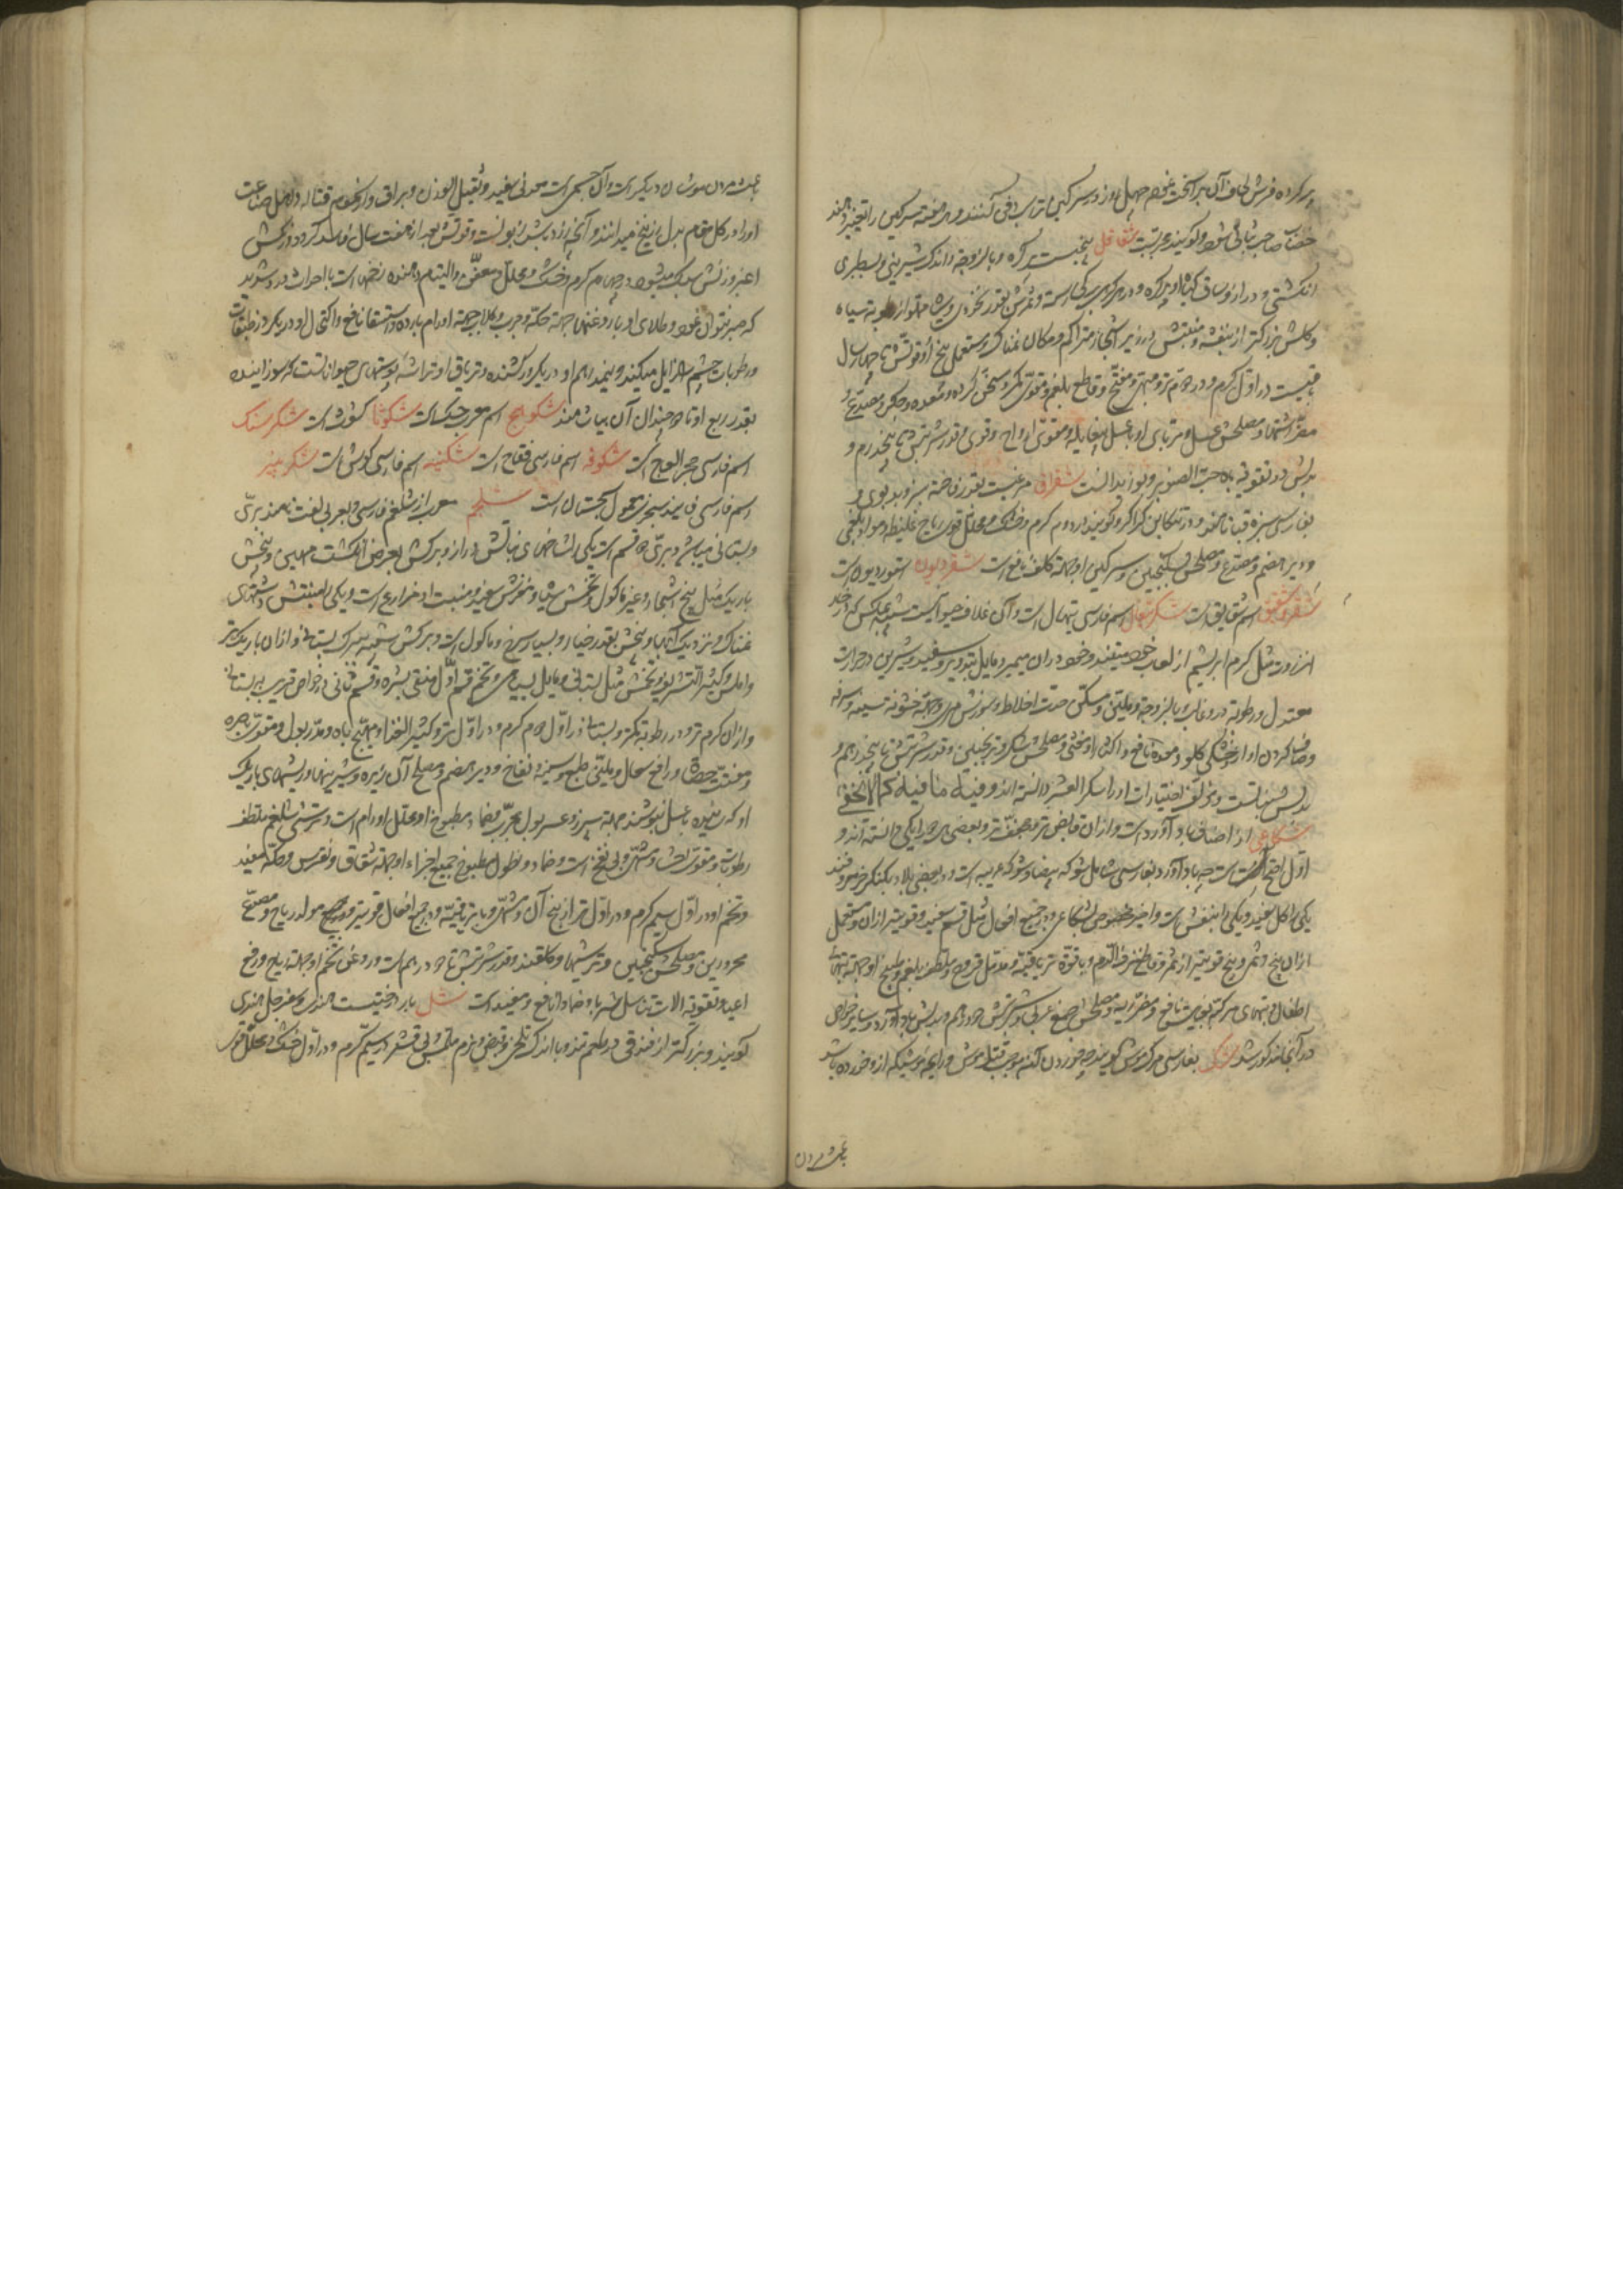 پر کرده فرش لحاف آن بر آتخت نمود چهل روز در سرکین
خفت صاحب ثباتی شود و گویند مجربست شقاقل بیخیست پر کره و با لزوجة و اندک شیرینی و بسطبری
انکشتی و دراز و ساق گیاه او پر کره و در هر کرهی برگی رسته و ثمرش بقدر نخودی و سیاه و مملو از رطوبة سیاه
و گلش بزرگتر از بنفشه و منبتش در زیر اشجار متراکم و مکان نمناک و مستعمل بیخ او و قوتش تا چهار سال
باقیست در اول گرم و در دوم تر و مبهی و مفتح و قاطع بلغم و مقوی کمر و مسخن گرده و معده و جگر و مصدع و
مضر اشتها و مصلحش عسل و مربای او با عسل بیغایله و مقوی ارواح و قوی و قدر شربتش تا پنجدرم و
بدلش در تقویة باه حب الصنوبر و بوزیدانست شقراق مرغیست بقدر فاخته سبز و بدبوی و
بفارسی سبزه قبا نامند و در تنکابن کراکر گویند در دوم گرم و خشک و محلل قوی ریاح غلیظه و مواد بلغمی
و دیر هضم و مصدع و مصلحش سکنجبین و سرگین او جهة کلف نافع است شقردیون اسقوردیون است
شقر و شقیق اسم شقایق است شکر تیغال اسم فارسی تیهال است و آن غلاف حیوانیست شبیه بمگس که در خود
از زردرت مثل کرم ابریشم از لعاب خود میتند و خود در آن میمیرد مایل بتدویر و سفید و شیرین در حرارت
معتدل و رطوبة در او غالب و با لزوجة و ملین و مسکن حدت اخلاط و سوزش سینه و جهة خشونة سینه و سرفه
و صاف کردن آواز و خشکی گلو و معده نافع و اکثار او مغثی و مصلحش شکر و ترنجبین و قدر شربتش تا پنج درهم و
بدلش نباتست و مؤلف اختیارات او را سکر العشر دانسته اند و فیه ما فیه کما لا یخفی
شکاعی از اصناف باد آورد است و از آن قابض تر و مجفف تر و بعضی هر دو را یکی دانسته اند و
اول اصح است چه باد آورد بفارسی شامل شوکه بیضا و شوکه عربیه است و در بعضی بلاد بکنکر خر معروفند
یکی را گل سفید و یکی را بنفش است و اخیر مخصوص شکاعی و در جمیع افعال مثل قسم سفید و قویتر از آن و مستعمل
از آن بیخ و ثمر و بیخ قویتر از ثمر و قاطع نزف الدم و با قوة تریاقیة و مدمل قروح و ملطف بلغم و طبیخ او جهة تبهای
اطفال و تبهای مرکبه بغایت نافع و مضر ریه و مصلحش صمغ عربی و شربتش دو درهم و بدلش باد آورد و سایر خواص
در آنجا مذکور شد شک بفارسی مرگ موش گویند چه خوردن آن موجب قتل موش و رایحه موشیکه از او خورده باشد
باعث مردن
باعث مردن موشان دیگر است و آن جسمی است معدنی سفید و ثقیل الوزن و براق و از سموم قتاله و اهل صناعت
او را در کل مقام بدل زرنیخ میدانند و آنچه زرد باشد زبونست و قوتش بعد از هفت سال فاسد گردد و رنگش
اغبر و وزنش سبک میشود در چهارم گرم و خشک و محلل و معفن و التیام دهنده زخمهاست با احراق درد شدید
که صبر نتوان نمود و طلای او با روغنها جهة حکه و جرب و کلا جهة اورام بارده و استسقا نافع و اکتحال او در یکروز طبقات
و رطوبات چشم را زایل میکند و نیمدرهم او در یکروز کشنده و تریاق او تراشه پوستهای حیوانات است که سوزانیده
بقدر ربع او تا دو چندان آن بیاشامند شکوهج اسم عربی حسک است شکوثا کشوث است شکرسنک
اسم فارسی حجر العاج است شکوفه اسم فارسی فقاح است شکنبه اسم فارسی کرش است شکربینیر
اسم فارسی فانید سجزی معمول سجستان است شلجم معرب از شلغم فارسی و بعربی لفت نامند بری
و بستانی میباشد و بری دو قسم است یکی را شاخهای نباتش دراز و برگش بعرض انگشت مهین و بیخش
باریک مثل بیخ اشجار و غیر ماکول و تخمش سیاه و مغزش سفید و منبت او مزارع است و یکی را منبتش دشتهای
نمناک و نزدیک آبها و بیخش بقدر خیار و بسیار سرخ و ماکول است و برگش شبیه ببرگ بستانی و از آن باریکتر
و املس و کثیر التشریف و تخمش مثل بستانی و مایل بسیاهی و تخم قسم اول منقی بشره و قسم ثانی در خواص قریب به بستانی
و از آن گرم تر و در رطوبة کمتر و بستانی در اول دوم گرم و در اول تر و کثیر الغذا و مهیج باه و مدر بول و مقوی باصره
و مفتت حصاة و رافع سعال و ملین طبع و سینه و نفاخ و دیر هضم و مصلح آن زیره و شیرینیها و ریشهای باریک
او که رنیده با عسل بنوشند جهة سپرز و عسر بول مجرب و ضماد مطبوخ او محلل اورام است و ترشی شلغم ملطف
رطوبات و مقوی احشا و مشهی و بی نفخ است و ضماد و نطول مطبوخ جمیع اجزاء او جهة شقاق و نقرس و حکه مفید
و تخم او در اول سیم گرم و در اول تر از بیخ آن و مشهی و با تریاقیة و در جمیع افعال قویتر و مهیج و مولد ریاح و مصدع
محرورین و مصلحش سکنجبین و ترشیها و گلقند و قدر شربتش تا دو درهم است و روغن تخم او جهة ریاح و رفع
اعیا و تقویة آلات تناسل شربا و ضمادا نافع و مفید است شل بار درختیست هندی و سفرجل هندی
گویند و بزرگتر از فندقی در طعم تند و با اندک تلخی و قبض و نرم ملمس و بی قشر در سیم گرم و در اول خشک و محلل قوی